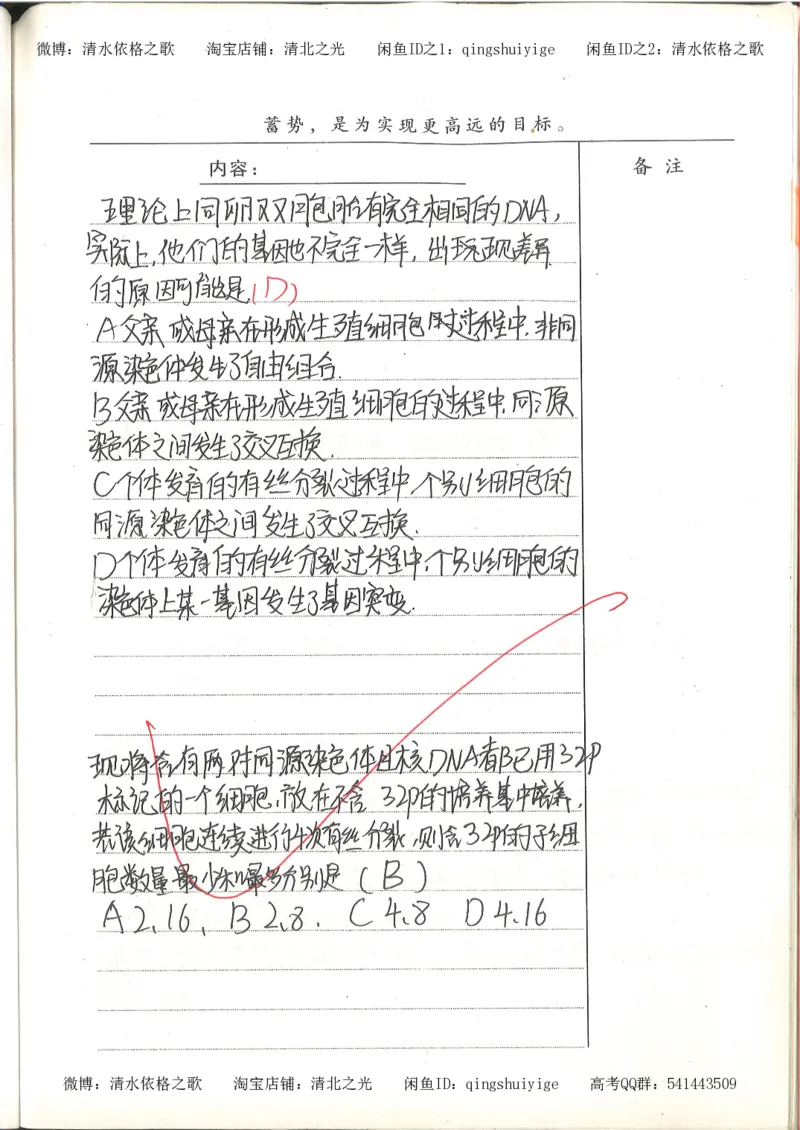 微博：清水依格之歌 淘宝店铺：清北之光 闲鱼ID之1：qingshuiyige 闲鱼ID之2：清水依格之歌
蓄势，是为实现更高远的目标。
内容：
备 注
理论上同卵双胞胎有完全相同的DNA，
实际上，他们的基因也不完全一样，出现差异
的原因可能是(D)
A父亲或母亲在形成生殖细胞的过程中，非同
源染色体发生了自由组合．
B父亲或母亲在形成生殖细胞的过程中，同源
染色体之间发生了交叉互换．
C个体发育的有丝分裂过程中，个别细胞的
同源染色体之间发生了交叉互换．
D个体发育的有丝分裂过程中，个别细胞的
染色体上某一基因发生了基因突变．
现将含有两对同源染色体且核DNA都已用32P
标记的一个细胞，放在不含32P的培养基中培养，
若该细胞连续进行4次有丝分裂，则含32P的子细
胞数量最少和最多分别是（B）
A 2、16、 B 2、8． C 4、8 D 4、16
微博：清水依格之歌 淘宝店铺：清北之光 闲鱼ID：qingshuiyige 高考QQ群：541443509